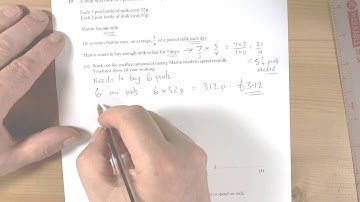 Each 1 pint bottle of milk costs 52p.
Each 2 pint bottle of milk costs 93p.
Martin has no milk
He assumes that he uses, on average, 3/4 of a pint of milk each day.
Martin wants to buy enough milk to last for 7 days. → 7 × 3/4 = 7×3/1×4 = 21/4
= 5 1/4 pints
needed
Work out the smallest amount of money Martin needs to spend on milk.
You must show all your working.
Needs to buy 6 pints
6 one pints 6 × 52p = 312p £3.12